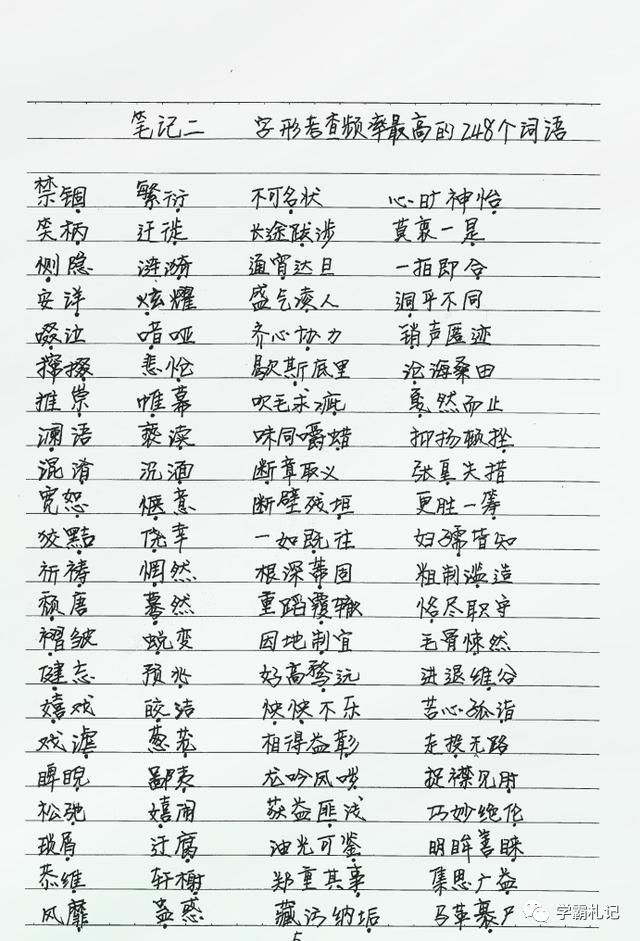 笔记二 字形考查频率最高的248个词语
禁锢 繁衍 不可名状 心旷神怡
笑柄 迁徙 长途跋涉 莫衷一是
恻隐 涟漪 通宵达旦 一拍即合
安详 炫耀 盛气凌人 迥乎不同
啜泣 喑哑 齐心协力 销声匿迹
撺掇 悲怆 歇斯底里 沧海桑田
推崇 帷幕 吹毛求疵 戛然而止
谰语 亵渎 味同嚼蜡 抑扬顿挫
混淆 沉湎 断章取义 张皇失措
宽恕 惬意 断壁残垣 更胜一筹
狡黠 侥幸 一如既往 妇孺皆知
祈祷 惘然 根深蒂固 粗制滥造
颓唐 蓦然 重蹈覆辙 恪尽职守
褶皱 蜕变 因地制宜 毛骨悚然
健忘 预兆 好高骛远 进退维谷
嬉戏 皎洁 怏怏不乐 苦心孤诣
戏谑 葱茏 相得益彰 走投无路
睥睨 鄙夷 龙吟凤哕 捉襟见肘
松弛 嬉闹 获益匪浅 巧妙绝伦
琐屑 迂腐 油光可鉴 明眸善睐
恭维 轩榭 郑重其事 集思广益
风靡 蛊惑 藏污纳垢 马革裹尸
5
学霸札记